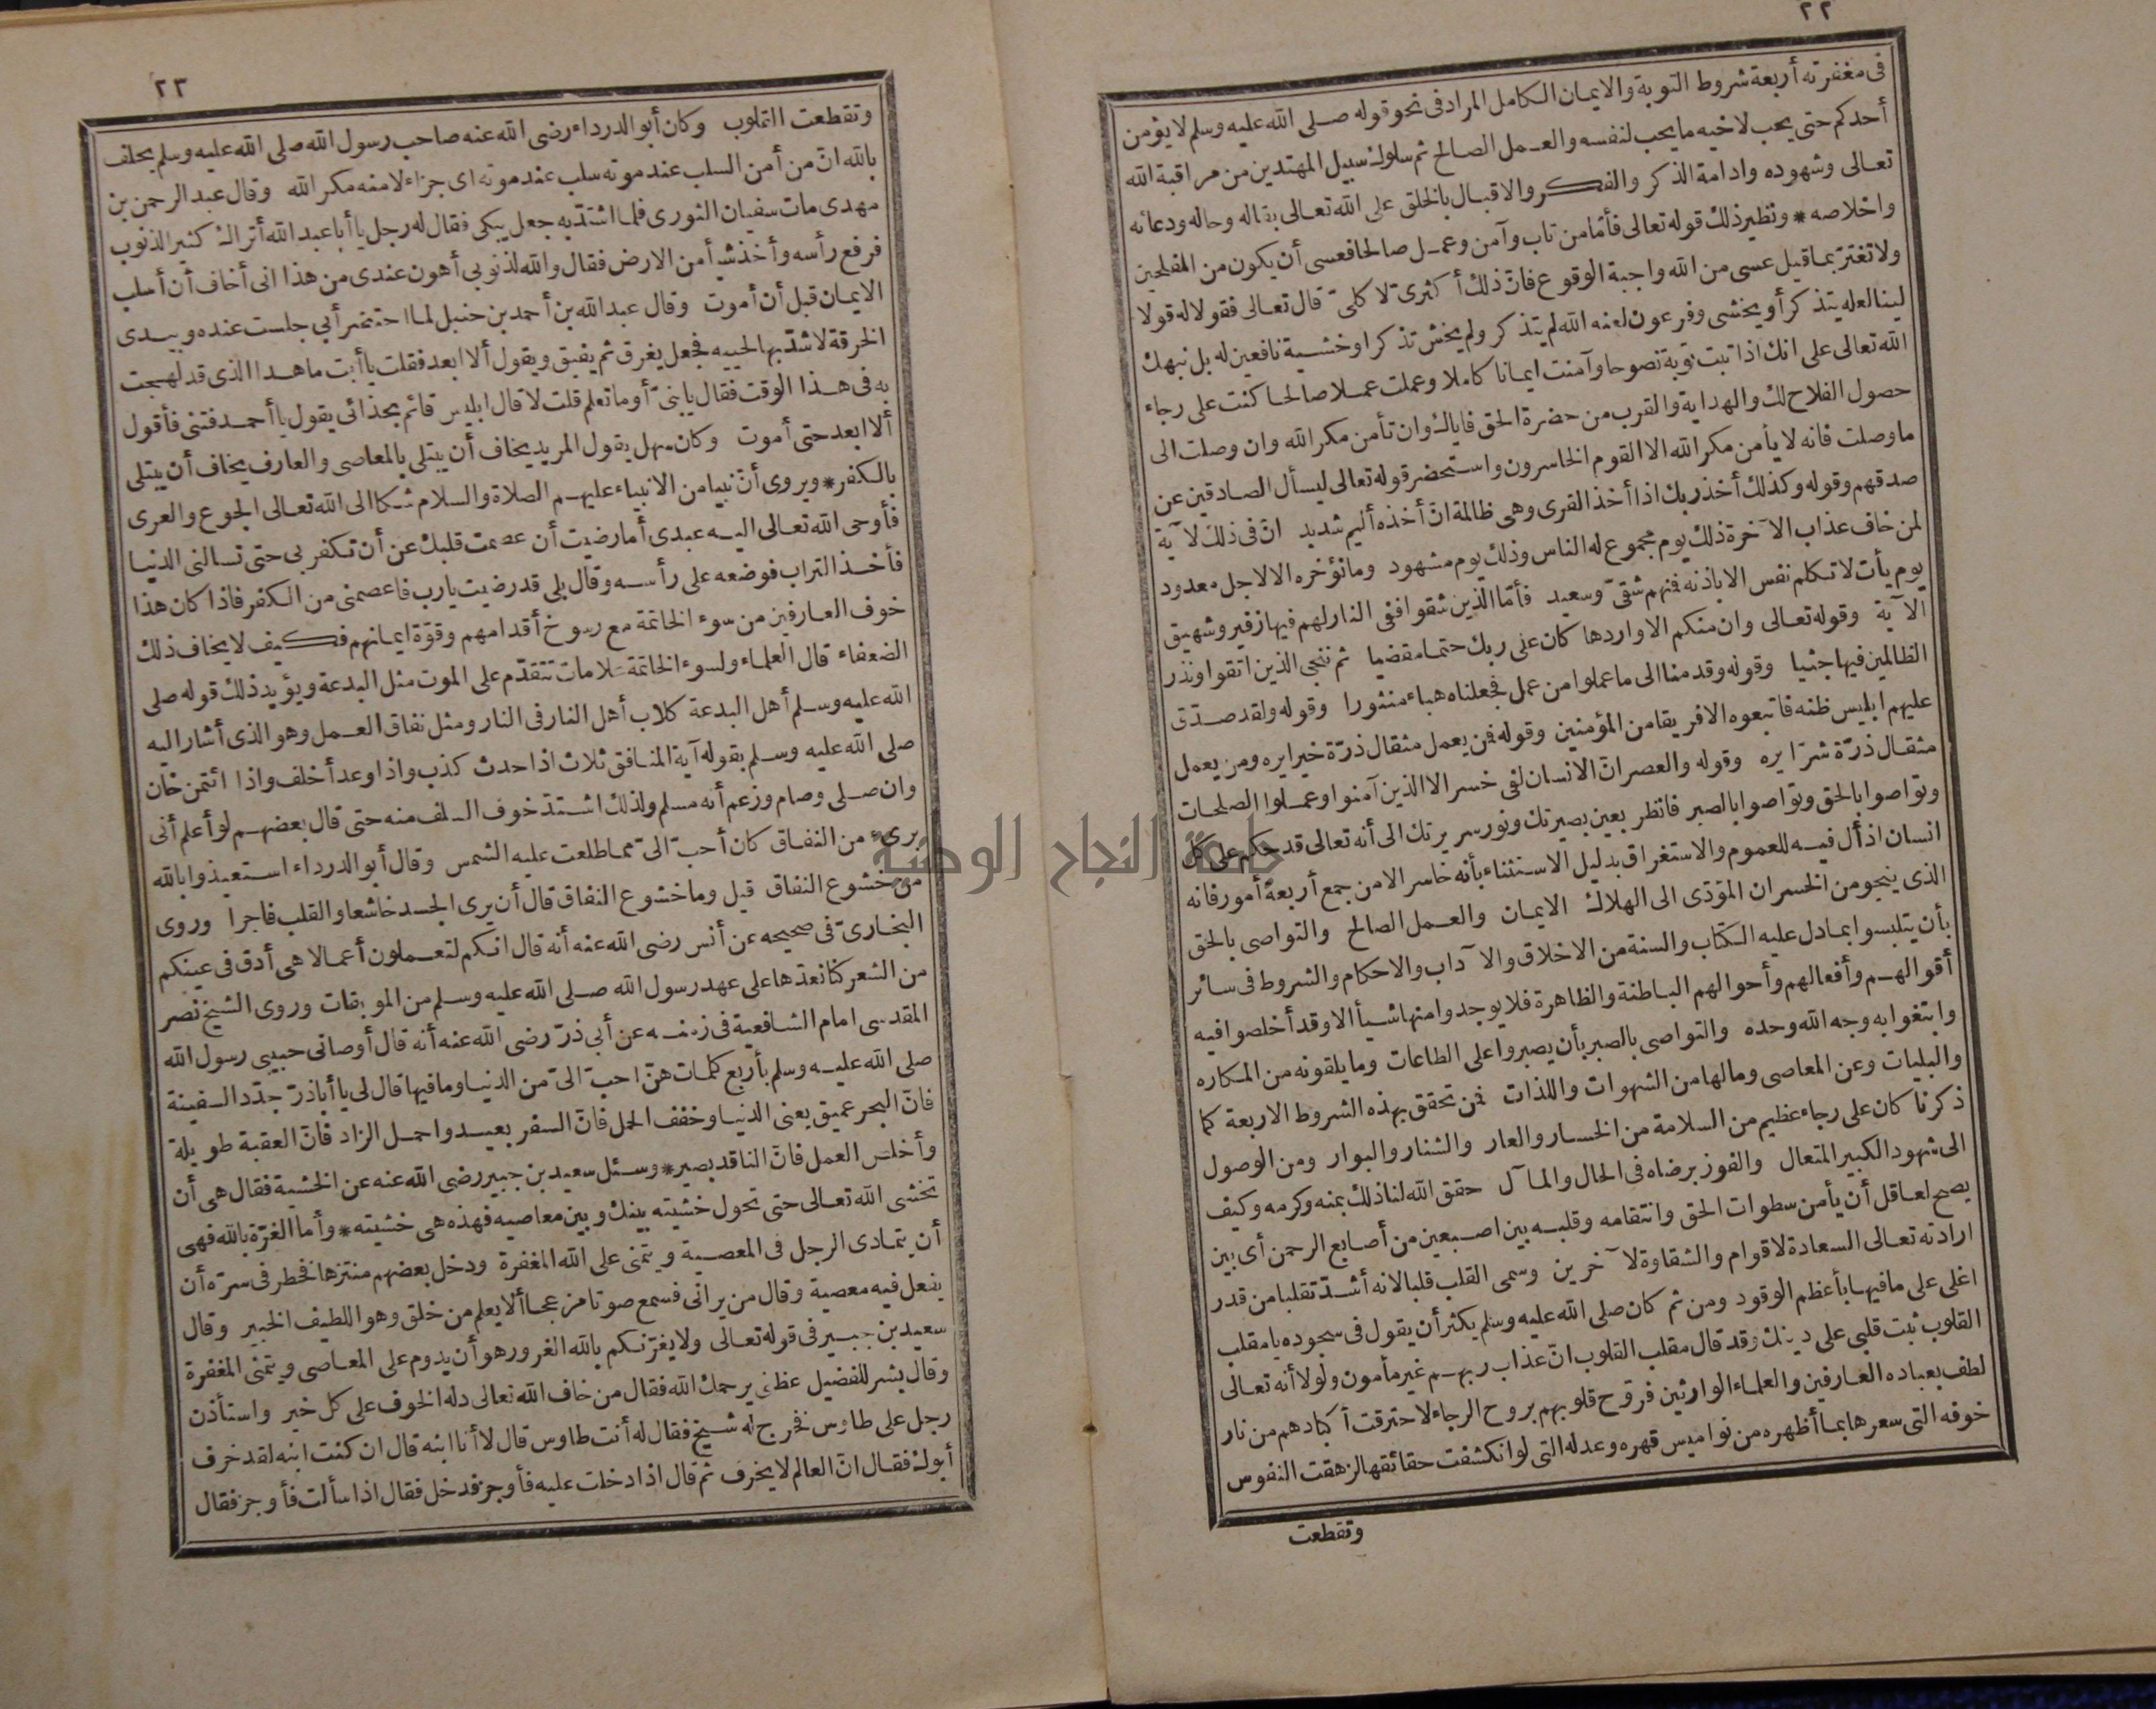 ٢٢
فى مغفرته أربعة شروط التوبة والايمان الكامل المراد فى نحو قوله صلى الله عليه وسلم لا يؤمن
أحدكم حتى يحب لاخيه ما يحب لنفسه والعمل الصالح ثم سلوك سبيل المهتدين من مراقبة الله
تعالى وشهوده وادامة الذكر والفكر والاقبال بالخلق على الله تعالى بقاله وحاله ودعائه
واخلاصه * ونظير ذلك قوله تعالى فأمّا من تاب وآمن وعمل صالحا فعسى أن يكون من المفلحين
ولا تغترّ بما قيل عسى من الله واجبة الوقوع فانّ ذلك أكثرىّ لا كلىّ قال تعالى فقولا له قولا
لينا لعله يتذكر أو يخشى وفرعون لعنه الله لم يتذكر ولم يخش تذكرا وخشية نافعين له بل نبهك
الله تعالى على انك اذا تبت توبة نصوحا وآمنت ايمانا كاملا وعملت عملا صالحا كنت على رجاء
حصول الفلاح لك والهداية والقرب من حضرة الحق فاياك وان تأمن مكر الله وان وصلت الى
ما وصلت فانه لا يأمن مكر الله الا القوم الخاسرون واستحضر قوله تعالى ليسأل الصادقين عن
صدقهم وقوله وكذلك أخذ ربك اذا أخذ القرى وهى ظالمة انّ أخذه أليم شديد انّ فى ذلك لآية
لمن خاف عذاب الآخرة ذلك يوم مجموع له الناس وذلك يوم مشهود وما نؤخره الا لاجل معدود
يوم يأت لا تكلم نفس الا باذنه فمنهم شقىّ وسعيد فأمّا الذين شقوا ففى النار لهم فيها زفير وشهيق
الآية وقوله تعالى وان منكم الا واردها كان على ربك حتما مقضيا ثم ننجى الذين اتقوا ونذر
الظالمين فيها جثيا وقوله وقدمنا الى ما عملوا من عمل فجعلناه هباء منثورا وقوله ولقد صدّق
عليهم ابليس ظنه فاتبعوه الا فريقا من المؤمنين وقوله فمن يعمل مثقال ذرّة خيرا يره ومن يعمل
مثقال ذرّة شرّا يره وقوله والعصر انّ الانسان لفى خسر الا الذين آمنوا وعملوا الصلحات
وتواصوا بالحق وتواصوا بالصبر فانظر بعين بصيرتك ونور سريرتك الى أنه تعالى قد حكم على كل
انسان اذ أل فيه للعموم والاستغراق بدليل الاستثناء بأنه خاسر الا من جمع أربعة أمور فانه
الذى ينجو من الخسران المؤدّى الى الهلاك الايمان والعمل الصالح والتواصى بالحق
بأن يتلبسوا بما دل عليه الكتاب والسنة من الاخلاق والآداب والاحكام والشروط فى سائر
أقوالهم وأفعالهم وأحوالهم الباطنة والظاهرة فلا يوجدوا منها شيأ الا وقد أخلصوا فيه
وابتغوا به وجه الله وحده والتواصى بالصبر بأن يصبروا على الطاعات وما يلقونه من المكاره
والبليات وعن المعاصى وما لها من الشهوات واللذات فمن تحقق بهذه الشروط الاربعة كما
ذكرنا كان على رجاء عظيم من السلامة من الخسار والعار والشنار والبوار ومن الوصول
الى شهود الكبير المتعال والفوز برضاه فى الحال والمآل حقق الله لنا ذلك بمنه وكرمه وكيف
يصح لعاقل أن يأمن سطوات الحق وانتقامه وقلبه بين اصبعين من أصابع الرحمن أى بين
ارادته تعالى السعادة لاقوام والشقاوة لآخرين وسمى القلب قلبا لانه أشدّ تقلبا من قدر
اغلى على ما فيها بأعظم الوقود ومن ثم كان صلى الله عليه وسلم يكثر أن يقول فى سجوده يا مقلب
القلوب ثبت قلبى على دينك وقد قال مقلب القلوب انّ عذاب ربهم غير مأمون ولولا أنه تعالى
لطف بعباده العارفين والعلماء الوارثين فروّح قلوبهم بروح الرجاء لاحترقت أكبادهم من نار
خوفه التى سعرها بما أظهره من نواميس قهره وعدله التى لو انكشفت حقائقها لزهقت النفوس
وتقطعت
٢٣
وتقطعت القلوب وكان أبو الدرداء رضى الله عنه صاحب رسول الله صلى الله عليه وسلم يحلف
بالله انّ من أمن السلب عند موته سلب عند موته اى جزاء لامنه مكر الله وقال عبد الرحمن بن
مهدى مات سفيان الثورى فلما اشتدّ به جعل يبكى فقال له رجل يا أبا عبد الله أتراك كثير الذنوب
فرفع رأسه وأخذ شيأ من الارض فقال والله لذنوبى أهون عندى من هذا انى أخاف أن أسلب
الايمان قبل أن أموت وقال عبد الله بن أحمد بن حنبل لما احتضر أبى جلست عنده وبيدى
الخرقة لاشدّ بها لحييه فجعل يغرق ثم يفيق ويقول ألا ابعد فقلت يا أبت ما هذا الذى قد لهجت
به فى هذا الوقت فقال يا بنىّ أو ما تعلم قلت لا قال ابليس قائم بحذائى يقول يا أحمد فتنى فأقول
ألا ابعد حتى أموت وكان سهل يقول المريد يخاف أن يبتلى بالمعاصى والعارف يخاف أن يبتلى
بالكفر * ويروى أنّ نبيا من الانبياء عليهم الصلاة والسلام شكا الى الله تعالى الجوع والعرى
فأوحى الله تعالى اليه عبدى أما رضيت أن عصمت قلبك عن أن تكفر بى حتى تسالنى الدنيا
فأخذ التراب فوضعه على رأسه وقال بلى قد رضيت يارب فاعصمنى من الكفر فاذا كان هذا
خوف العارفين من سوء الخاتمة مع رسوخ أقدامهم وقوّة ايمانهم فكيف لا يخاف ذلك
الضعفاء قال العلماء ولسوء الخاتمة علامات تتقدّم على الموت مثل البدعة ويؤيد ذلك قوله صلى
الله عليه وسلم أهل البدعة كلاب أهل النار فى النار ومثل نفاق العمل وهو الذى أشار اليه
صلى الله عليه وسلم بقوله آية المنافق ثلاث اذا حدث كذب واذا وعد أخلف واذا ائتمن خان
وان صلى وصام وزعم أنه مسلم ولذلك اشتدّ خوف السلف منه حتى قال بعضهم لو أعلم أنى
برىء من النفاق كان أحبّ الىّ مما طلعت عليه الشمس وقال أبو الدرداء استعيذوا بالله
من خشوع النفاق قيل وما خشوع النفاق قال أن يرى الجسد خاشعا والقلب فاجرا وروى
البخارىّ فى صحيحه عن أنس رضى الله عنه أنه قال انكم لتعملون أعمالا هى أدق فى عينكم
من الشعر كنا نعدّها على عهد رسول الله صلى الله عليه وسلم من الموبقات وروى الشيخ نصر
المقدسى امام الشافعية فى زمنه عن أبى ذرّ رضى الله عنه أنه قال أوصانى حبيبى رسول الله
صلى الله عليه وسلم بأربع كلمات هنّ احبّ الىّ من الدنيا وما فيها قال لى يا أبا ذرّ جدّد السفينة
فانّ البحر عميق يعنى الدنيا وخفف الحمل فانّ السفر بعيد واحمل الزاد فانّ العقبة طويلة
وأخلص العمل فانّ الناقد بصير * وسئل سعيد بن جبير رضى الله عنه عن الخشية فقال هى أن
تخشى الله تعالى حتى تحول خشيته بينك وبين معاصيه فهذه هى خشيته * وأما الغرّة بالله فهى
أن يتمادى الرجل فى المعصية ويتمنى على الله المغفرة ودخل بعضهم منتزها فخطر فى سرّه أن
يفعل فيه معصية وقال من يرانى فسمع صوتا مزعجا ألا يعلم من خلق وهو اللطيف الخبير وقال
سعيد بن جبير فى قوله تعالى ولا يغرّنكم بالله الغرور هو أن يدوم على المعاصى ويتمنى المغفرة
وقال بشر للفضيل عظنى يرحمك الله فقال من خاف الله تعالى دله الخوف على كل خير واستأذن
رجل على طاوس فخرج له شيخ فقال له أنت طاوس قال لا أنا ابنه قال ان كنت ابنه لقد خرف
أبوك فقال انّ العالم لا يخرف ثم قال اذا دخلت عليه فأوجز فدخل فقال اذا سألت فأوجز فقال
جامعة النجاح الوطنية